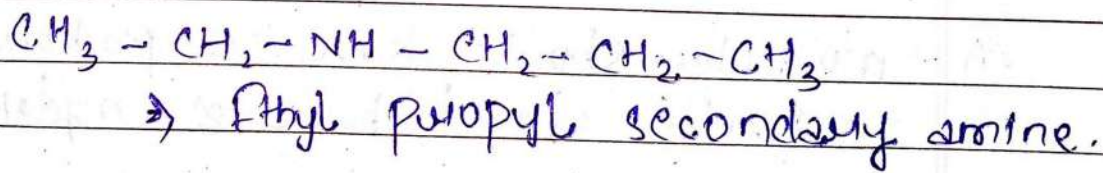 CH₃ - CH₂ - NH - CH₂ - CH₂ - CH₃
⇒ Ethyl propyl secondary amine.